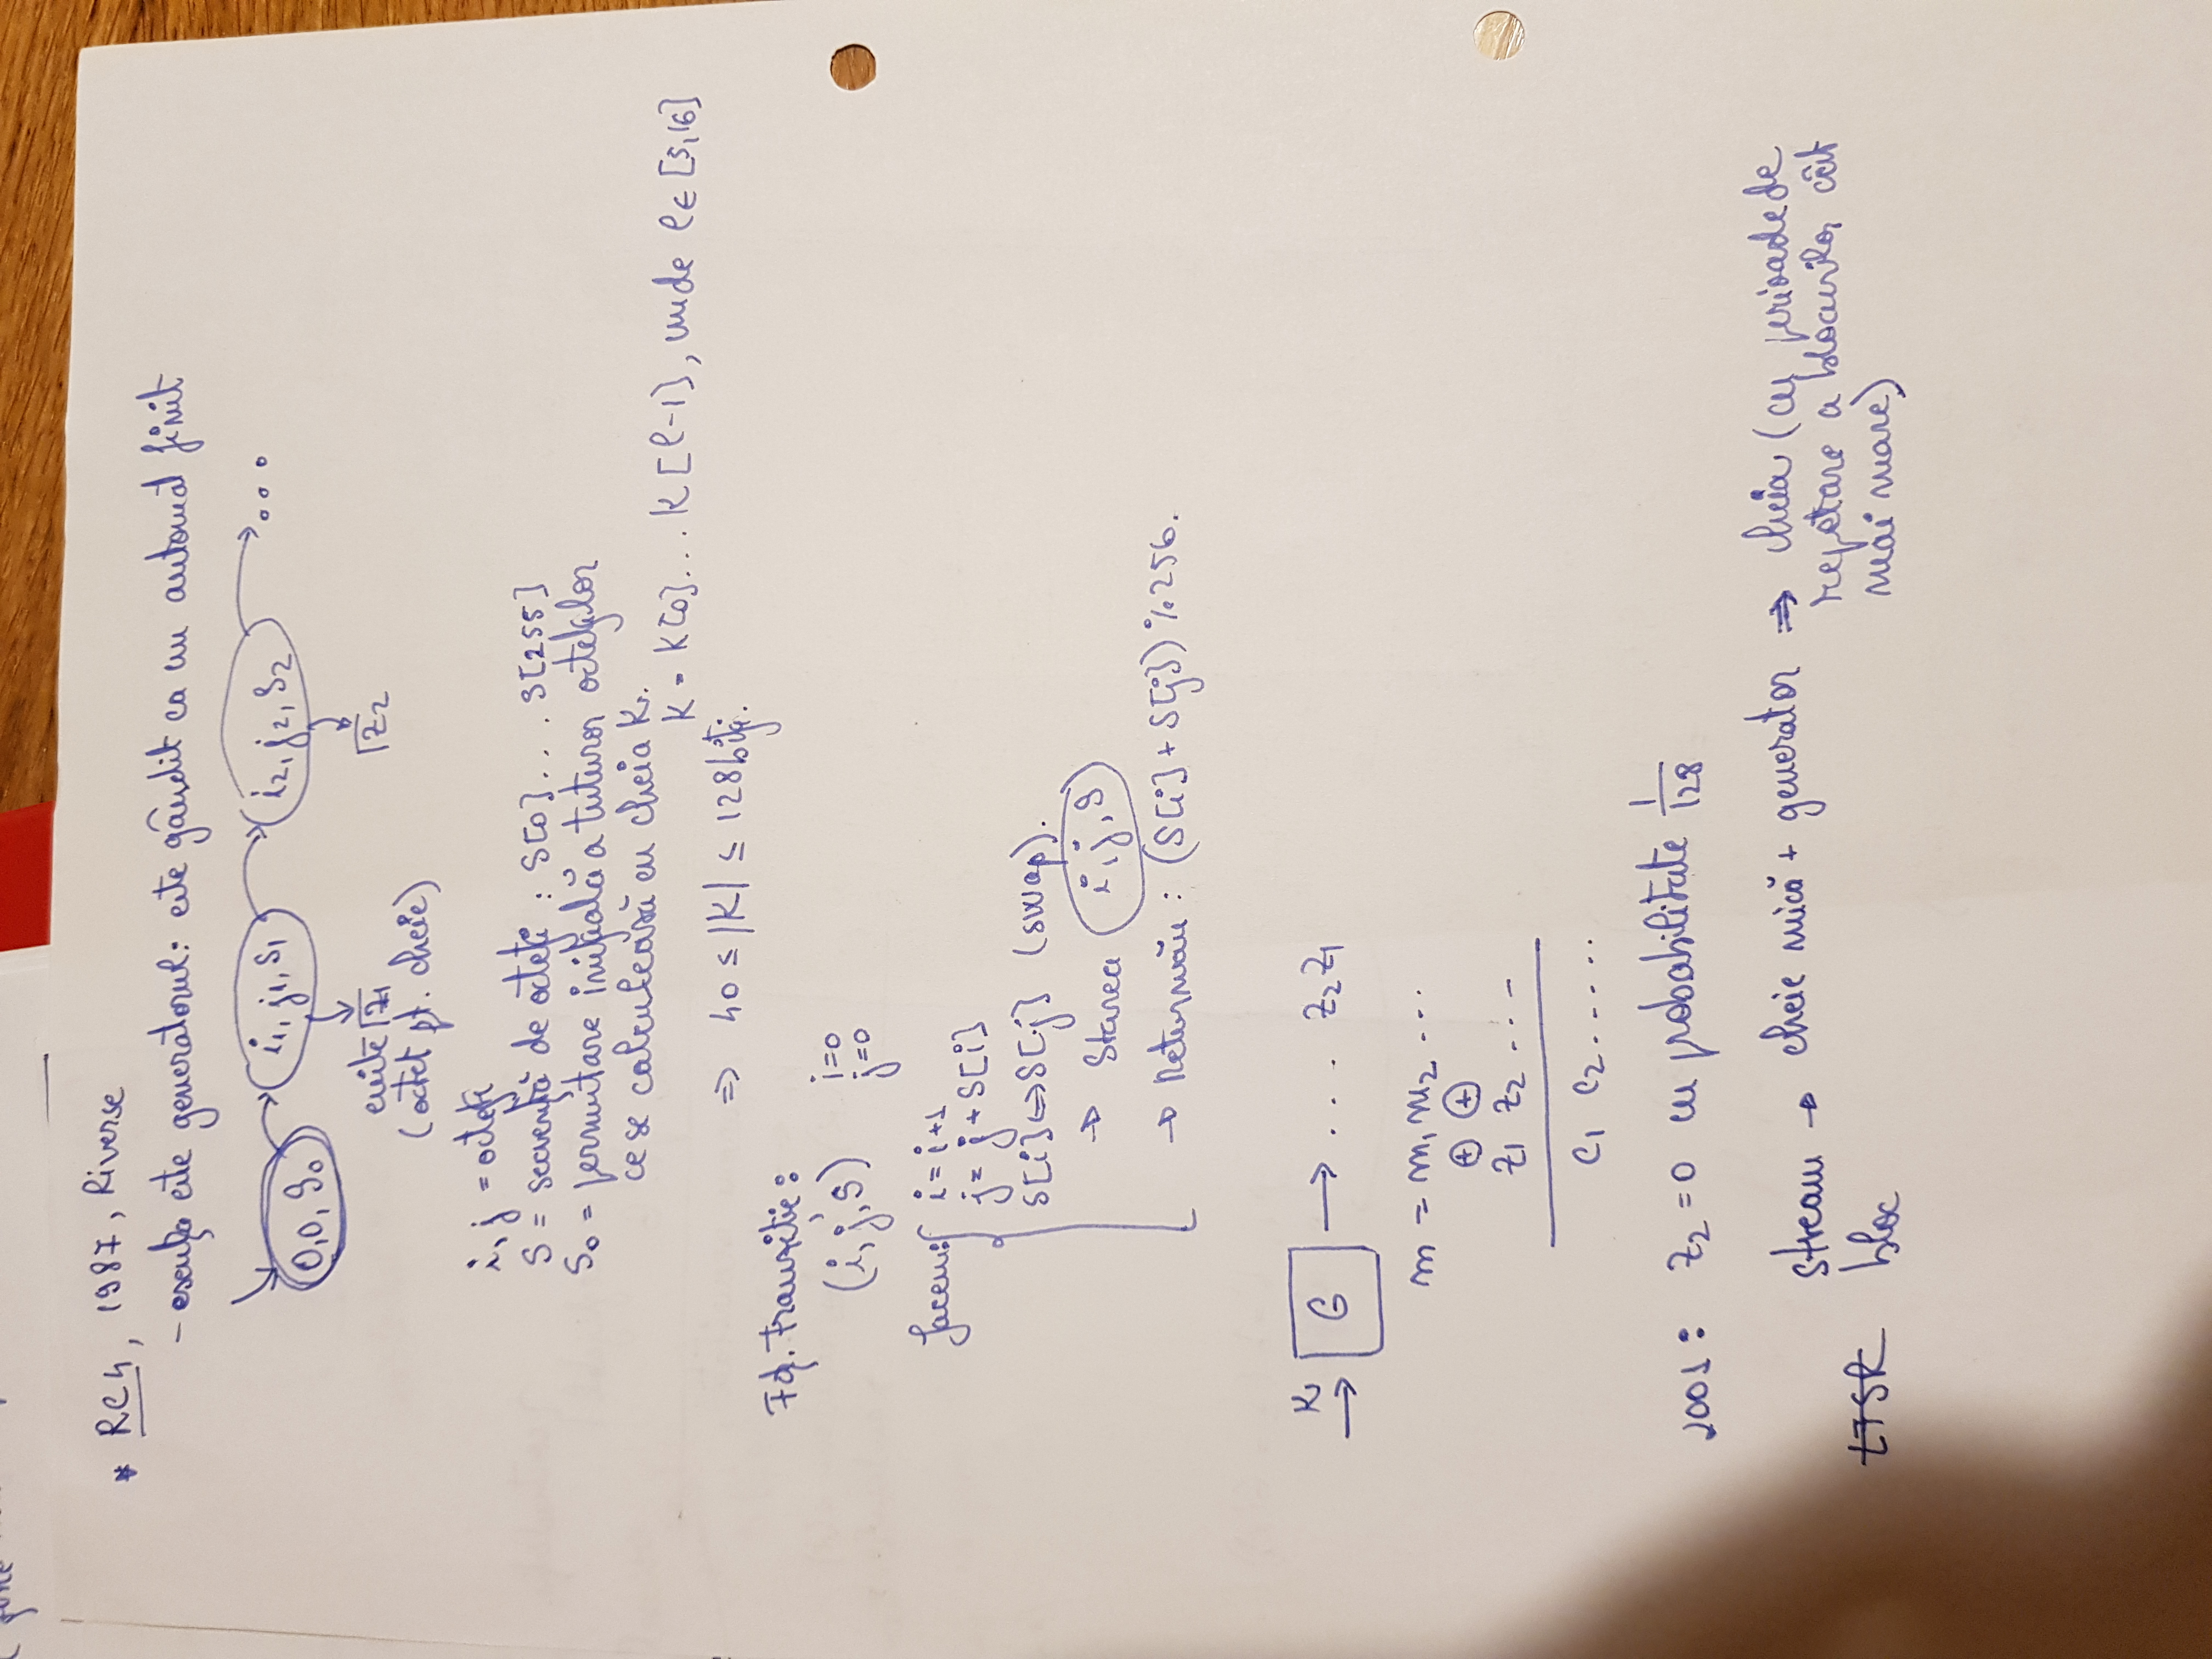 * RC4, 1987, Riverse
- esența este generatorul: este gândit ca un automat finit
0,0, S0 i1, j1, S1 i2, j2, S2 ...
emite Z1 Z2
(octet pt. cheie)
i, j = octeți
S = secvență de octeți : S[0] ... S[255]
S0 = permutare inițială a tuturor octeților
ce se calculează cu cheia K.
K = K[0]... K[l-1], unde l ∈ [5,16]
⇒ 40 ≤ |K| ≤ 128 biți.
Fț. Tranziție:
(i, j, S) i=0
j=0
facem: i = i+1
j = j + S[i]
S[i] ⇔ S[j] (swap).
→ Starea i, j, S
→ Returnăm : (S[i] + S[j]) % 256.
K
→ G → .... Z2 Z1
m = m1 m2 ...
⊕ ⊕
Z1 Z2 ...-
C1 C2 .....
2001: Z2 = 0 cu probabilitate 1/128
stream → cheie mică + generator ⇒ cheia (cu perioade de
repetare a blocurilor cât
mai mare)
LFSR bloc